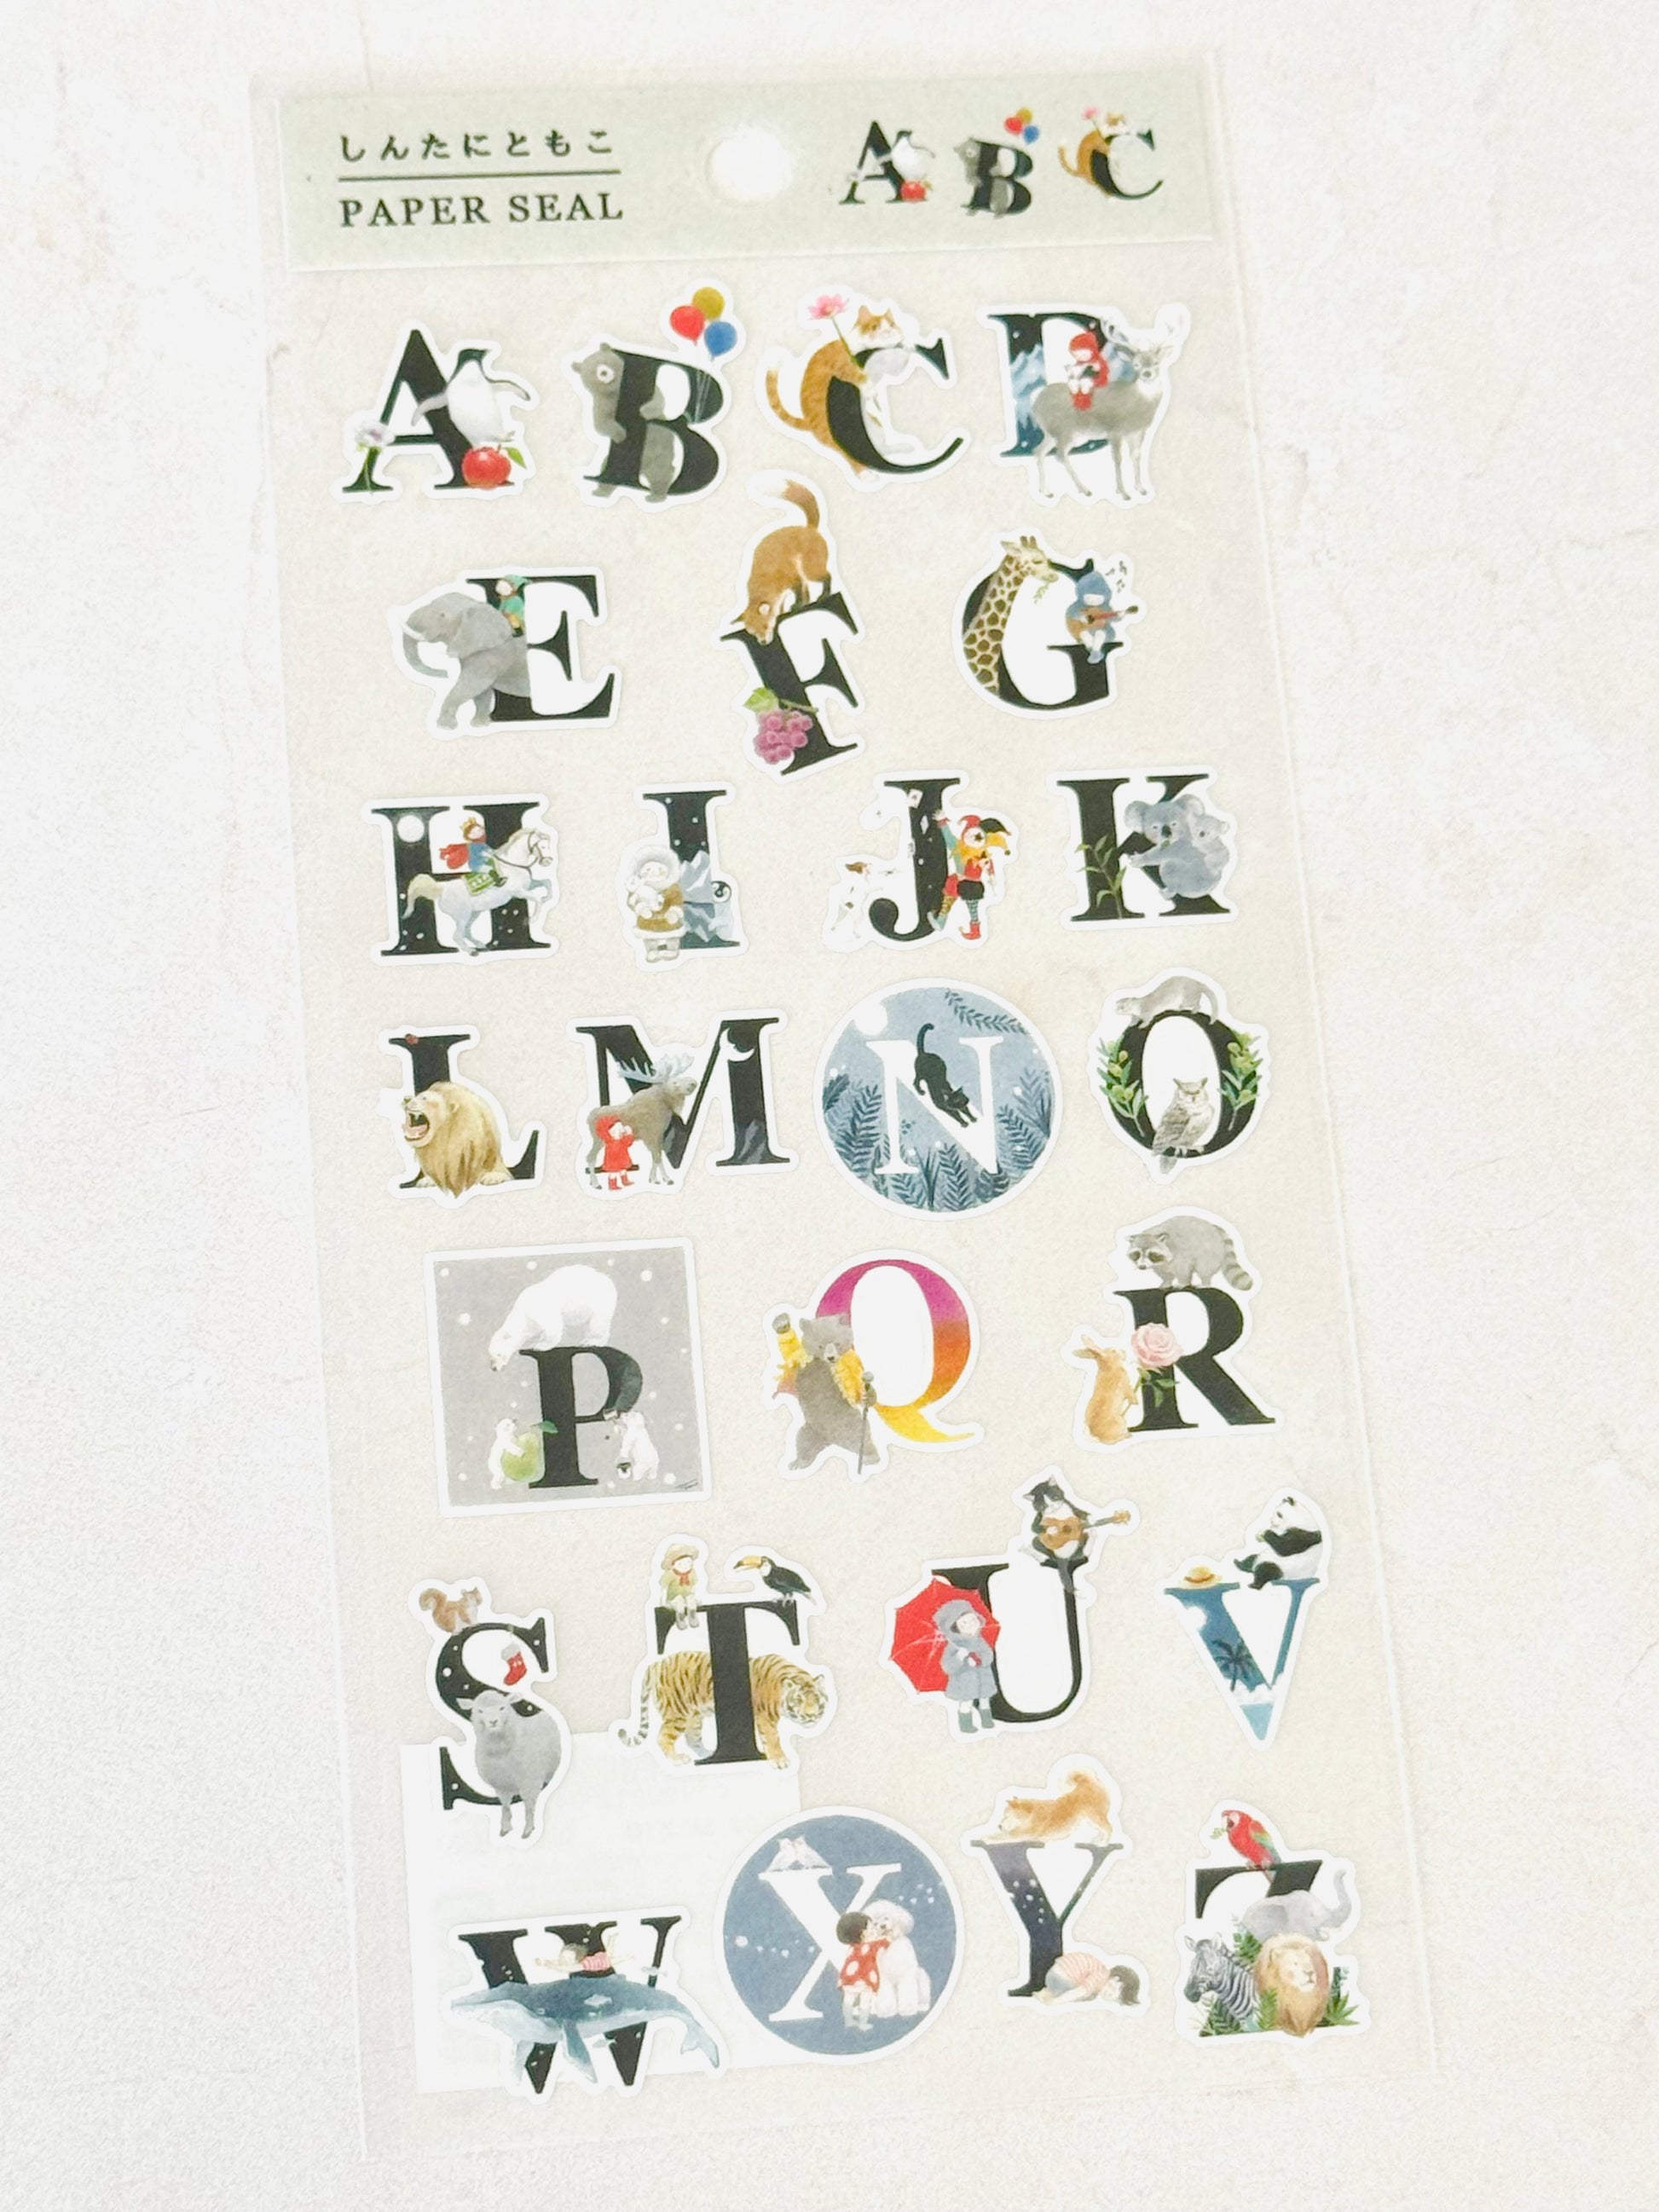 しんたにともこ
PAPER SEAL
A B C
A B C D
E F G
H I J K
L M N O
P Q R
S T U V
W X Y Z